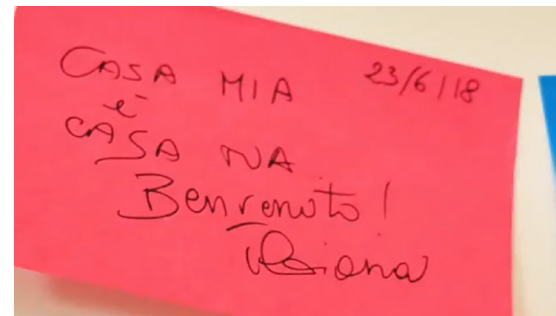 CASA MIA 23/6/18
è
CASA TUA
Benvenuto!